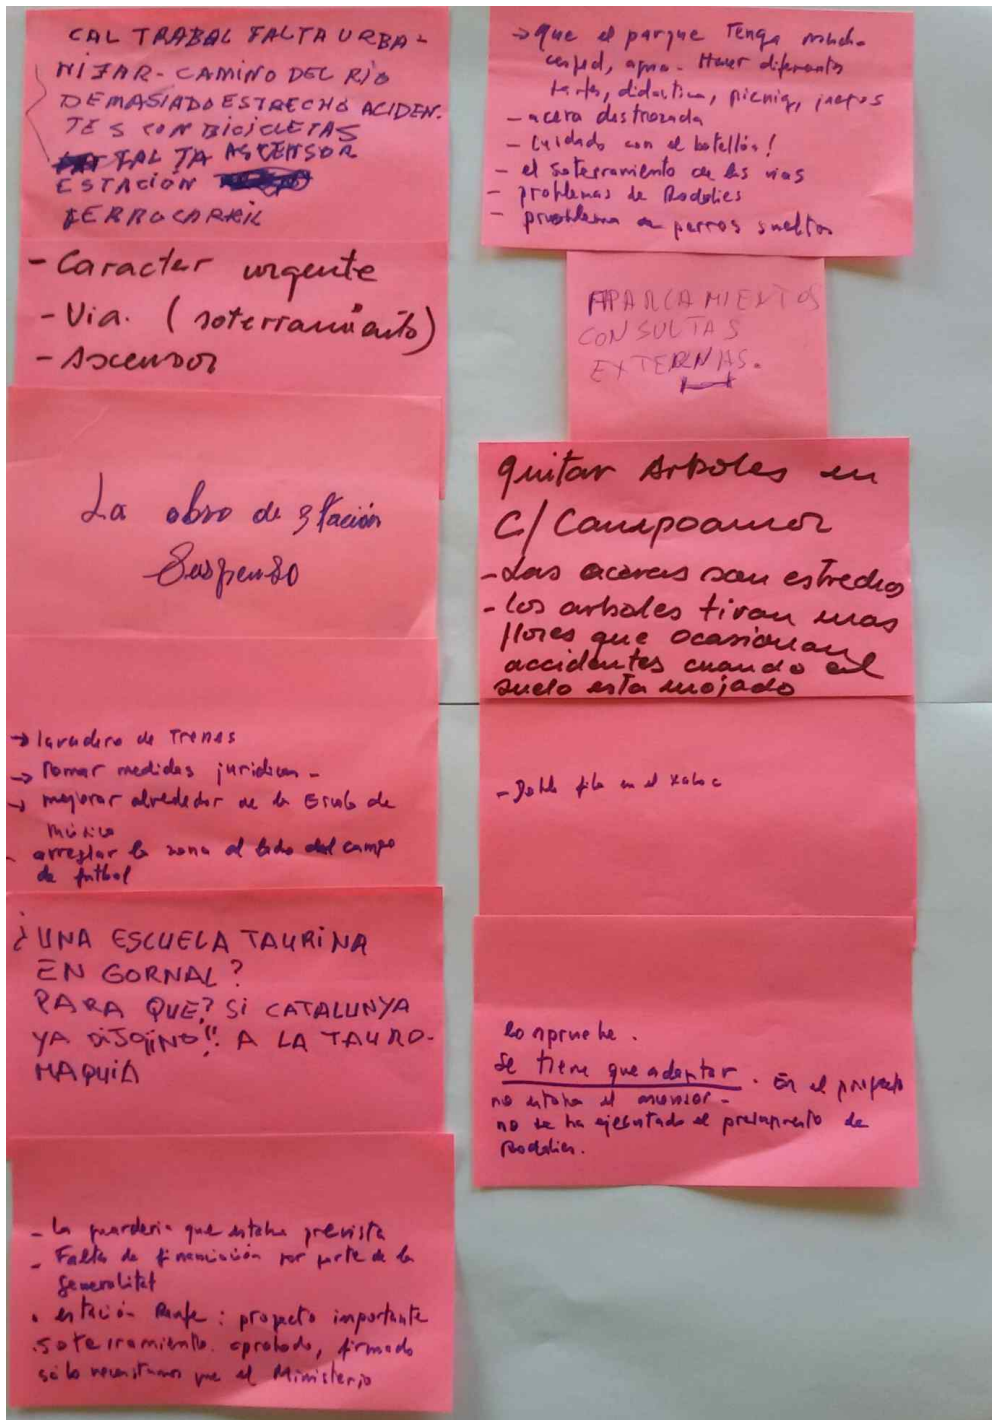 CAL TRABAL FALTA URBA-
NIZAR- CAMINO DEL RÍO
DEMASIADO ESTRECHO ACIDEN.
TES CON BICICLETAS
FALTA ASCENSOR
ESTACIÓN
FERROCARRIL
- Caracter urgente
- Via. (soterramiento)
- Ascensor
La obra de stación
Suspenso
→ lavadero de Trenes
→ Tomar medidas juridicas -
→ mejorar alrededor de la Escuela de
música
- arreglar la zona al lado del campo
de futbol
¿UNA ESCUELA TAURINA
EN GORNAL?
PARA QUE? SI CATALUNYA
YA DIJO ¡¡NO!! A LA TAURO-
MAQUIA
- La guarderia que estaba prevista
- Falta de financiación por parte de la
Generalitat
. estación Renfe: proyecto importante
. soterramiento. aprobado, firmado
sólo necesitamos que el Ministerio
→ que el parque Tenga mucho
cesped, agua - Hacer diferentes
didactica, picnic, juegos
- acera destrozada
- Cuidado con el botellón!
- el soterramiento de las vias
- problemas de Rodalies
- problema de perros sueltos
APARCAMIENTOS
CONSULTAS
EXTERNAS.
quitar Arboles en
C/ Campoamor
- Las aceras son estrechas
- los arboles tiran unas
flores que ocasionan
accidentes cuando el
suelo esta mojado
- Doble fila en el Xaloc
lo aprueba.
Se tiene que adaptar. En el proyecto
no estaba el ascensor -
no se ha ejecutado el presupuesto de
Rodalies.